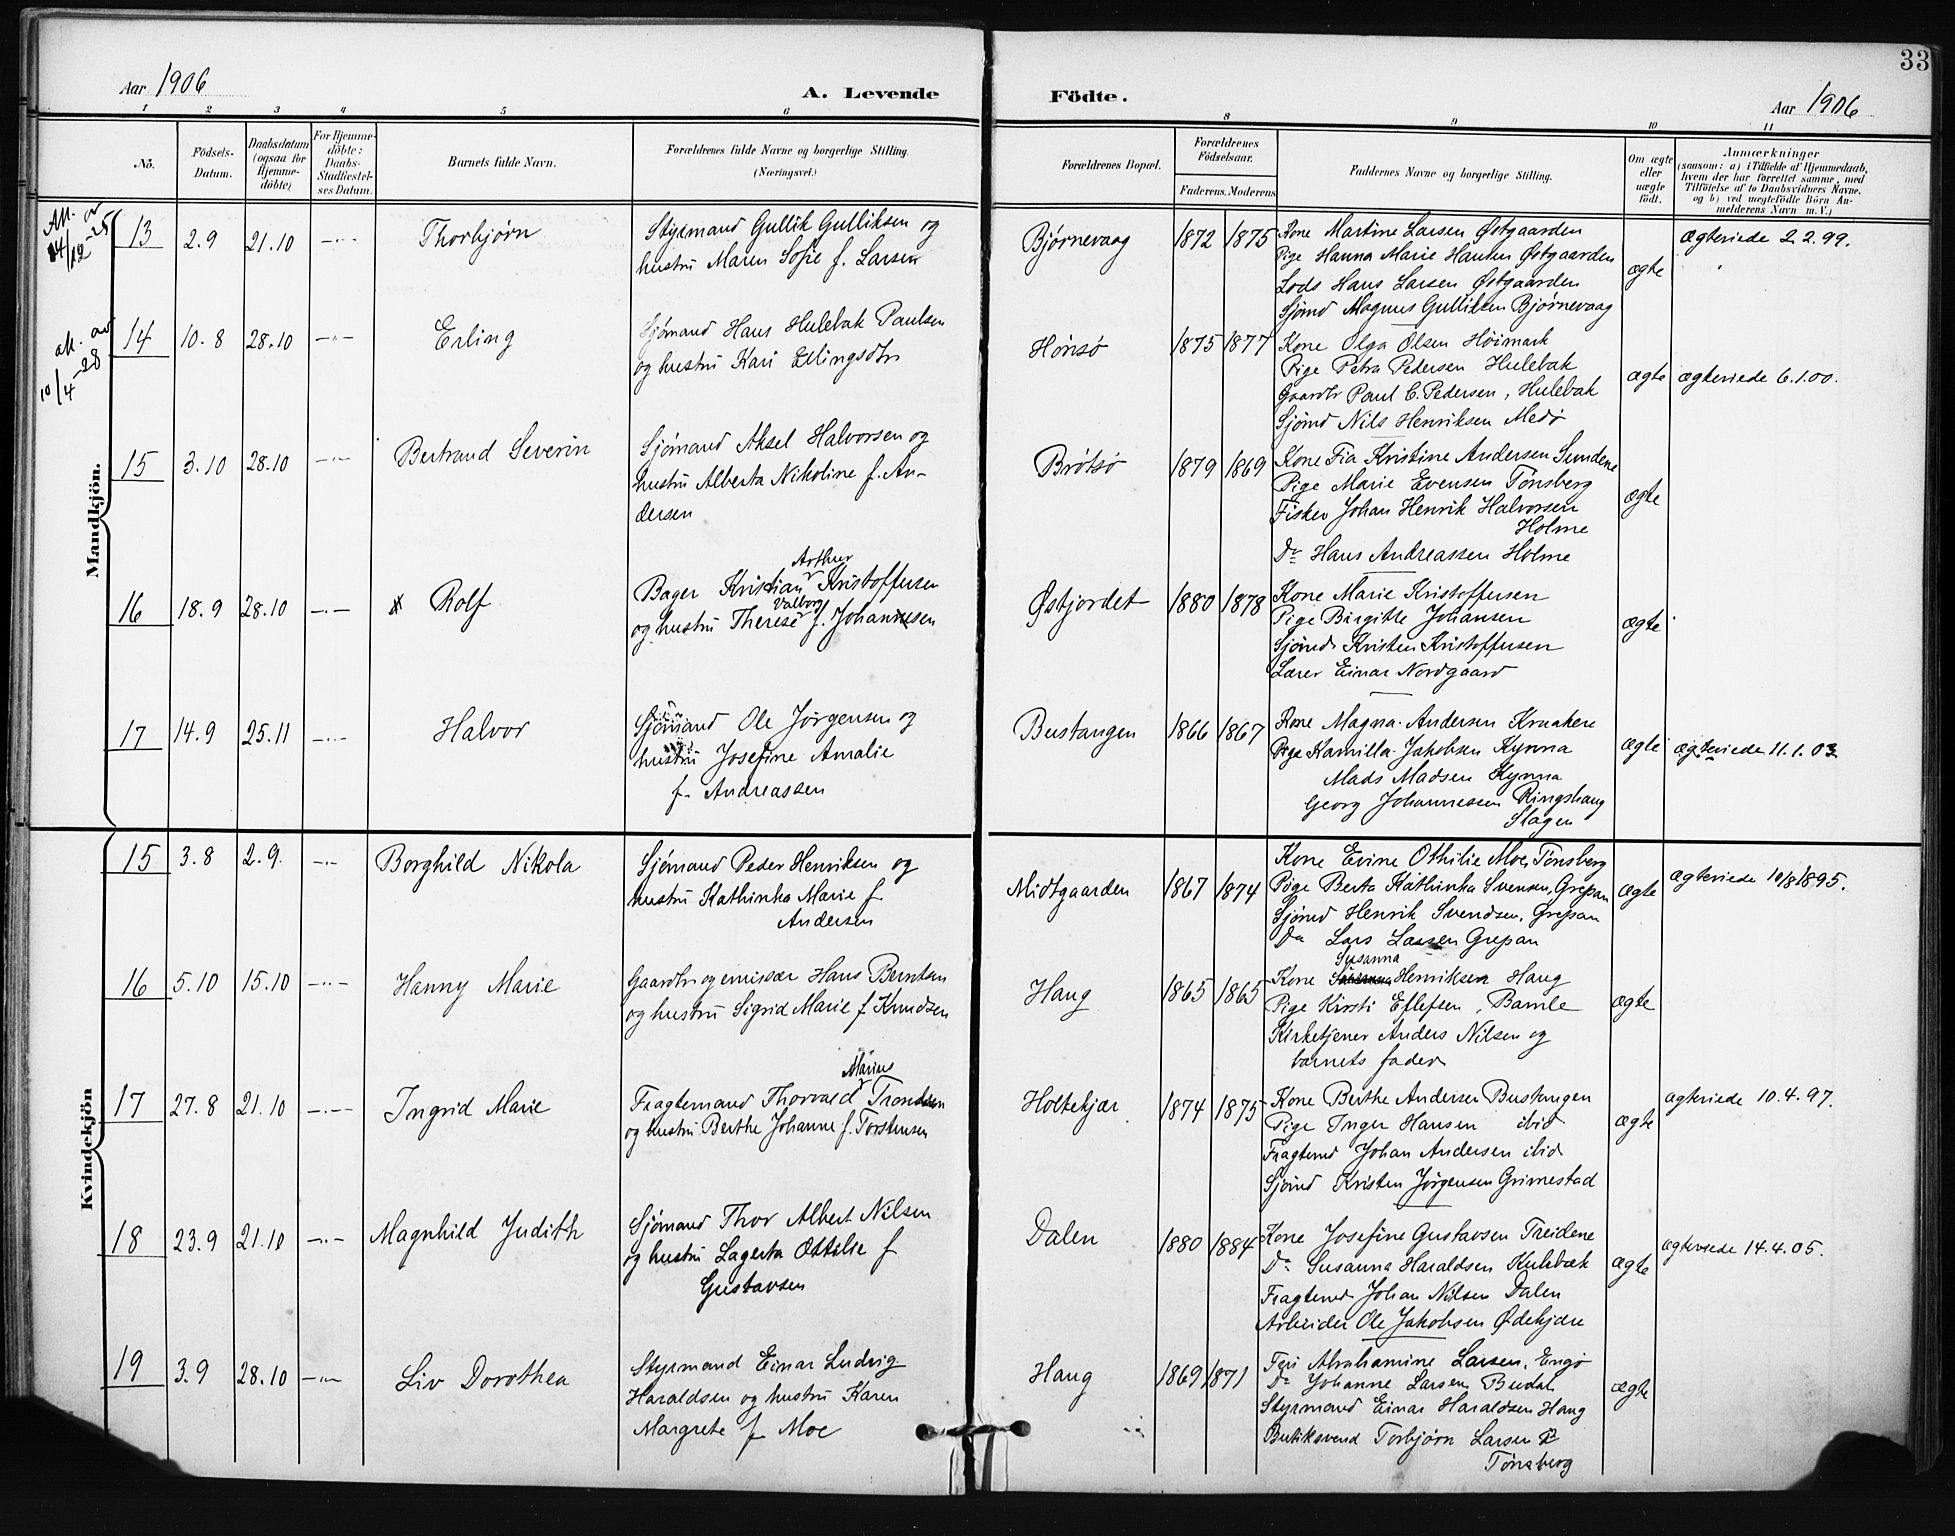 33
Aar 1906
A. Levende
Födte.
Aar 1906
1 2 3 4 5 6 8 9 10 11
No.
Födsels-
Datum.
Daabsdatum
(ogsaa for
Hjemme-
döbte)
For Hjemme-
döbte:
Daabs-
Stadfæstel-
ses Datum.
Barnets fulde Navn.
Forældrenes fulde Navne og borgerlige Stilling.
(Næringsvei.)
Forældrenes Bopæl.
Forældrenes
Födselsaar.
Faderens. Moderens
Faddernes Navne og borgerlige Stilling.
Om ægte
eller
uægte
født.
Anmærkninger
(saasom: a) i Tilfælde af Hjemmedaab,
hvem der har forrettet samme, med
Tilföielse af to Daabsvidners Navne.
og b) ved uægtefödte Börn An-
melderens Navn m. V.)
Mandkjön.
Att. av
14/12-25
13 2.9 21.10 -·- Thorbjørn
Styrmand Gullik Gulliksen og
hustru Maren Sofie f. Larsen
Bjørnevaag 1872 1875
Kone Martine Larsen Østgaarden
Pige Hanna Marie Hansen Østgaarden
Lods Hans Larsen Østgaarden
Sjømd Magnus Gulliksen Bjørnevaag
ægte
Ægteviede 2.2.99.
att. av
10/4-28
14 10.8 28.10 -·- Erling
Sjømand Hans Hulebak Paulsen
og hustru Kari Erlingsdtr
Hønsø 1875 1877
Kone Olga Olsen Høimark
Pige Petra Pedersen Hulebak
Gaardbr Paul C. Pedersen, Hulebak
Sjømd Nils Henriksen Medø
ægte
ægteviede 6.1.00.
15 3.10 28.10 -·- Bertrand Severin
Sjømand Aksel Halvorsen og
hustru Alberta Nikoline f. An-
dersen
Brøtsø 1879 1869
Kone Fia Kristine Andersen Sundene
Pige Marie Evensen Tønsberg
Fisker Johan Henrik Halvorsen
Holme
Do Hans Andreassen Holme
ægte
16 18.9 28.10 -·- x Rolf
Arthur
Bager Kristian Kristoffersen
Valborg
og hustru Therese f. Johannesen
Østjordet 1880 1878
Kone Marie Kristoffersen
Pige Birgitte Johansen
Sjømd Kristen Kristoffersen
Lærer Einar Nordgaard
ægte
17 14.9 25.11 -·- Halvor
Sjømand Ole Jørgensen og
hustru Josefine Amalie
f. Andreassen
Bustangen 1866 1867
Kone Magna Andersen Kraakere
Pige Kamilla Jakobsen Kynna
Mads Madsen Kynna
Georg Johannessen Ringshaug
Slagen
ægte
ægteviede 11.1.03
Kvindekjön
15 3.8 2.9. -·- Borghild Nikola
Sjømand Peder Henriksen og
hustru Kathinka Marie f.
Andersen
Midtgaarden 1867 1874
Kone Evine Othilie Moe, Tønsberg
Pige Berta Kathinka Svensen, Grepan
Sjømd Henrik Svendsen, Grepan
Do Lars Larsen Grepan
ægte
ægteviede 10/8 1895.
16 5.10 15.10 -·- Hanny Marie
Gaardbr og emissær Hans Berntsen
og hustru Sigrid Marie f Knudsen
Haug 1865 1865
Susanna
Kone Henriksen Haug
Pige Kirsti Eflefsen, Bamle
Kirketjener Anders Nilsen og
barnets fader
ægte
17 27.8 21.10 -·- Ingrid Marie
Marius
Fragtemand Thorvald Trondsen
og hustru Berthe Johanne f. Torstensen
Holtekjær 1874 1875
Kone Berthe Andersen Bustangen
Pige Inger Hansen ibid
Fragtemd Johan Andersen ibid
Sjømd Kristen Jørgensen Grimestad
ægte
ægteviede 10.4.97.
18 23.9 21.10 -·- Magnhild Judith
Sjømand Thor Albert Nilsen
og hustru Lagerta Ottilie f
Gustavsen
Dalen 1880 1884
Kone Josefine Gustavsen Treidene
Do Susanna Haraldsen Hulebak
Fragtemd Johan Nilsen Dalen
Arbeider Ole Jakobsen Ødekjære
ægte
ægteviede 14.4.05.
19 3.9 28.10 -·- Liv Dorothea
Styrmand Einar Ludvig
Haraldsen og hustru Karen
Margrete f Moe
Haug 1869 1871
Abrahamine Larsen, Engø
Do Johanne Larsen Budal
Styrmand Einar Haraldsen Haug
Butiksvend Torbjørn Larsen
Tønsberg
ægte